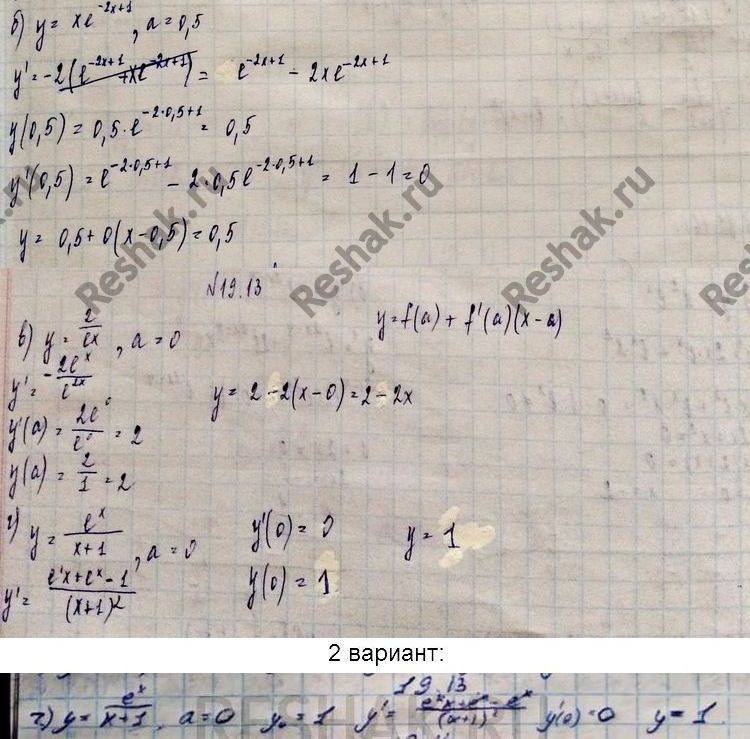 б) y = xe^{-2x+1}, a = 0,5
y' = -2(e^{-2x+1} + xe^{-2x+1}) = e^{-2x+1} - 2xe^{-2x+1}
y(0,5) = 0,5·e^{-2·0,5+1} = 0,5
y'(0,5) = e^{-2·0,5+1} - 2·0,5e^{-2·0,5+1} = 1 - 1 = 0
y = 0,5 + 0(x-0,5) = 0,5
Reshak.ru Reshak.ru Reshak.ru
№19.13
в) y = 2/e^x, a = 0 y = f(a) + f'(a)(x-a)
y' = -2e^x/e^{2x} y = 2-2(x-0) = 2-2x
y'(a) = 2e^0/e^0 = 2
y(a) = 2/1 = 2
г) y = e^x/(x+1), a = 0 y'(0) = 0 y = 1
y' = (e^x x + e^x - 1)/(x+1)^2 y(0) = 1
2 вариант:
19.13
г) y = e^x/(x+1), a = 0 y_0 = 1 y' = (e^x x + e^x - e^x)/(x+1)^2 y'(0) = 0 y = 1.
RESHAK.RU